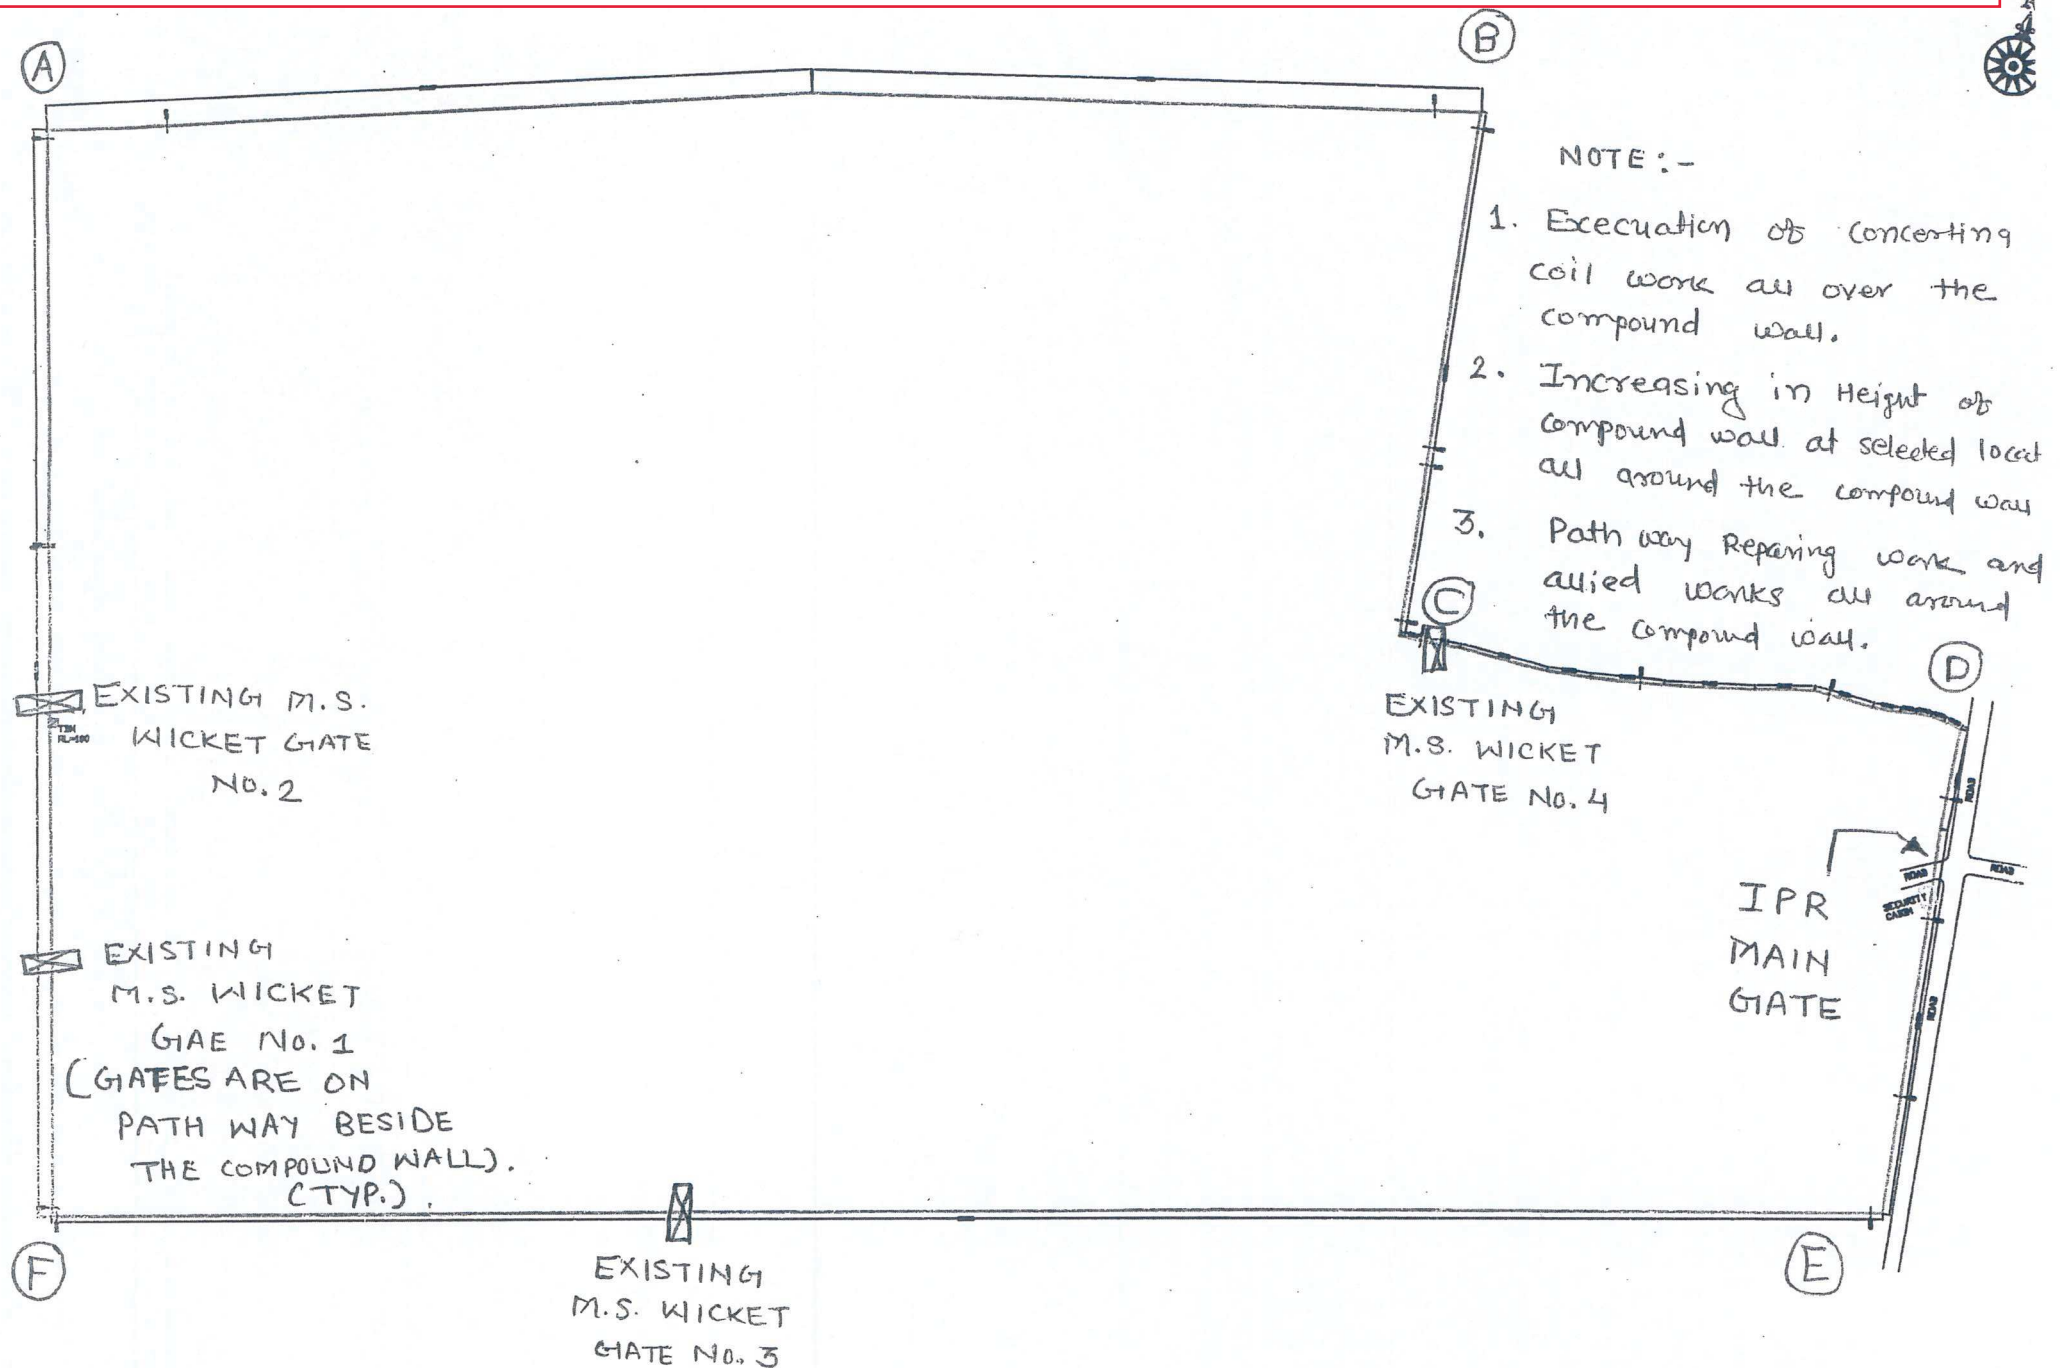 A
B
NOTE :-
1. Excecuation of concerting
coil work all over the
compound wall.
2. Increasing in Height of
compound wall at selected locat
all around the compound wall
3. Path way Reparing work and
allied works all around
the compound wall.
C
D
EXISTING M.S.
WICKET GATE
NO. 2
TBM
RL=100
EXISTING
M.S. WICKET
GATE NO. 4
ROAD
ROAD
ROAD
SECURITY
CABIN
IPR
MAIN
GATE
ROAD
EXISTING
M.S. WICKET
GAE NO. 1
(GATES ARE ON
PATH WAY BESIDE
THE COMPOUND WALL).
(TYP.).
F
E
EXISTING
M.S. WICKET
GATE NO. 3